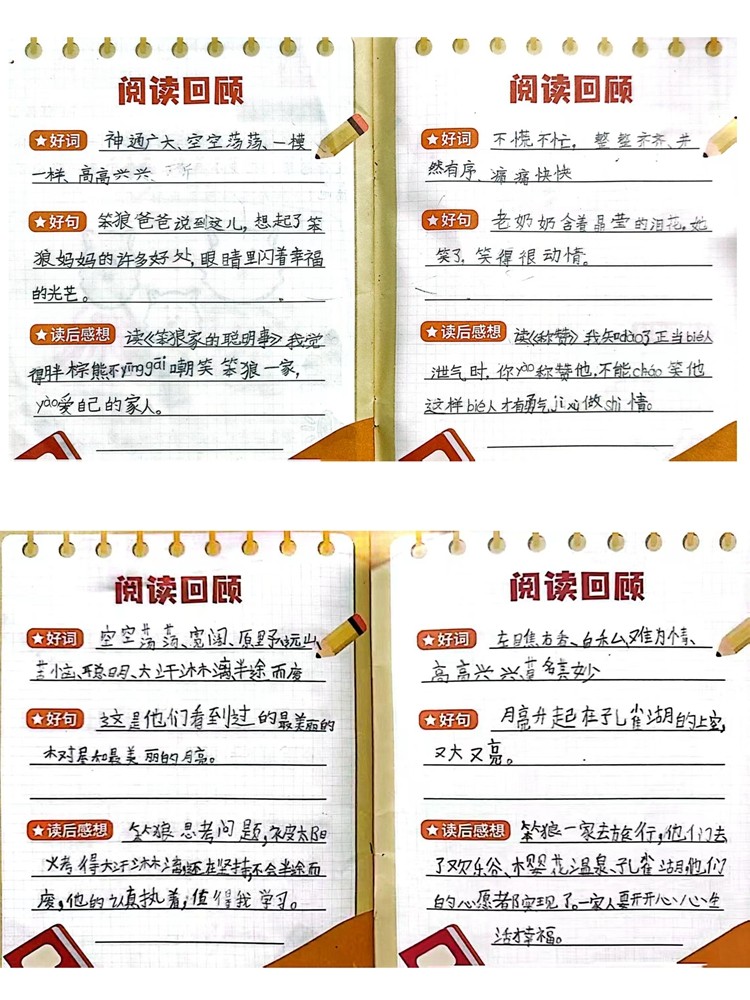 阅读回顾
好词 神通广大、空空荡荡、一模
一样、高高兴兴、
好句 笨狼爸爸说到这儿，想起了笨
狼妈妈的许多好处，眼睛里闪着幸福
的光芒。
读后感想 读《笨狼家的聪明事》我觉
得胖棕熊不yīnggāi嘲笑笨狼一家，
yào爱自己的家人。
阅读回顾
好词 不慌不忙，整整齐齐、井
然有序、痛痛快快
好句 老奶奶含着晶莹的泪花，她
笑了，笑得很动情。
读后感想 读《称赞》我知dào了正当bié人
泄气时，你yào称赞他，不能cháo笑他
这样bié人才有勇气jì xù做shì情。
阅读回顾
好词 空空荡荡、宽阔、原野、远山、
苦恼、聪明、大汗淋漓、半途而废
好句 这是他们看到过的最美丽的
村对层和最美丽的月亮。
读后感想 笨狼思考问题，被太阳
火考得大汗淋漓，还在坚持，不会半途而
废，他的认真执着，值得我学习。
阅读回顾
好词 左瞧右看、自私、难为情、
高高兴兴、莫名其妙
好句 月亮升起在孔雀湖的上空，
又大又亮。
读后感想 笨狼一家去旅行，他们去
了欢乐谷、樱花温泉、孔雀湖，他们
的心愿都实现了。一家人要开开心心，生
活才幸福。